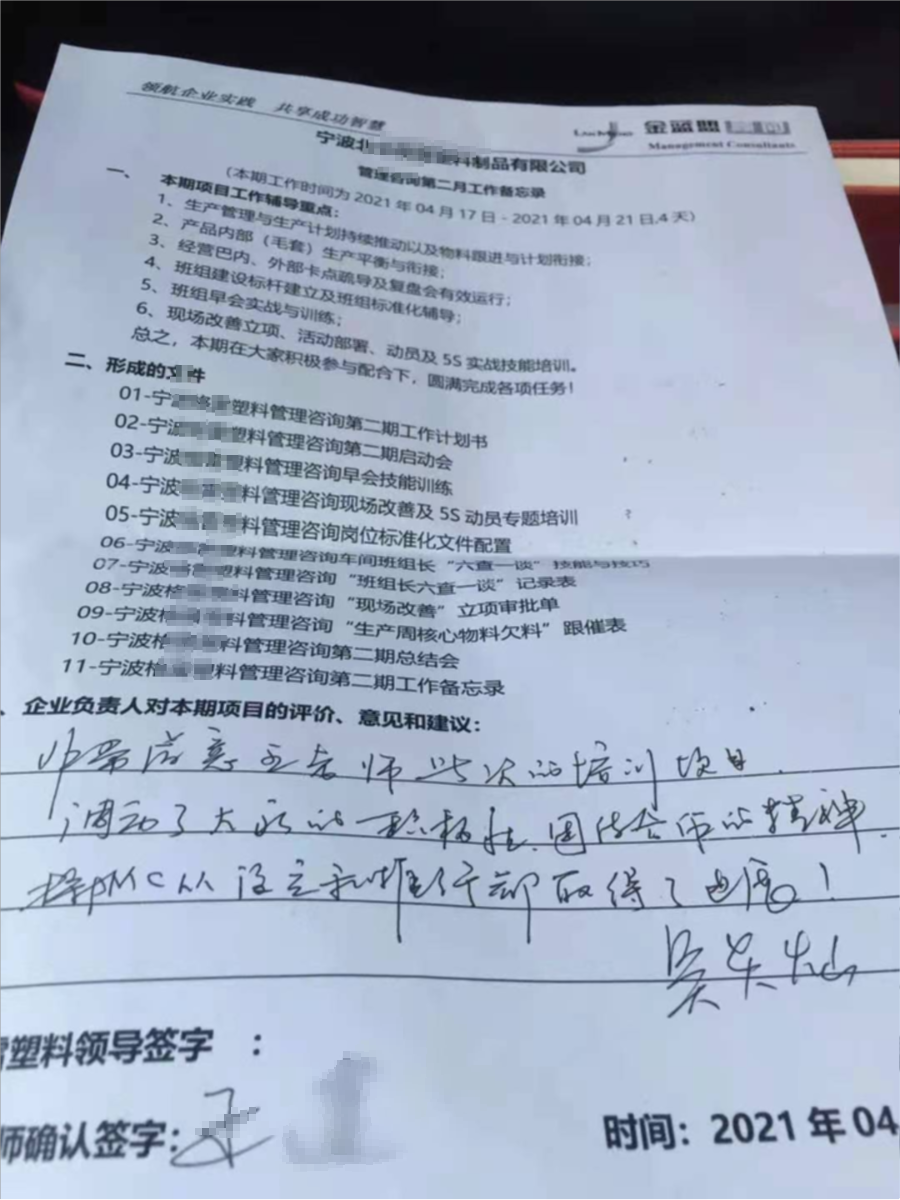 领航企业实践 共享成功智慧
金蓝盟
Management Consultants
宁波北 料制品有限公司
管理咨询第二月工作备忘录
(本期工作时间为2021年04月17日-2021年04月21日,4天)
一、 本期项目工作辅导重点:
1、生产管理与生产计划持续推动以及物料跟进与计划衔接;
2、产品内部(毛套)生产平衡与衔接;
3、经营巴内、外部卡点疏导及复盘会有效运行;
4、班组建设标杆建立及班组标准化辅导;
5、班组早会实战与训练;
6、现场改善立项、活动部署、动员及5S实战技能培训。
总之,本期在大家积极参与配合下,圆满完成各项任务!
二、形成的文件
01-宁波 塑料管理咨询第二期工作计划书
02-宁波 塑料管理咨询第二期启动会
03-宁波 塑料管理咨询早会技能训练
04-宁波 料管理咨询现场改善及5S动员专题培训
05-宁波 料管理咨询岗位标准化文件配置
06-宁波 塑料管理咨询车间班组长“六查一谈”技能与技巧
07-宁波 塑料管理咨询“班组长六查一谈”记录表
08-宁波格 料管理咨询“现场改善”立项审批单
09-宁波格 料管理咨询“生产周核心物料欠料”跟催表
10-宁波格 塑料管理咨询第二期总结会
11-宁波格 塑料管理咨询第二期工作备忘录
、企业负责人对本期项目的评价、意见和建议:
非常满意 老师此次的培训项目
调动了大家的积极性、团结合作的精神.
PMC从设立和推行都取得了进展!
吴
塑料领导签字 :
师确认签字: 王
时间: 2021年04